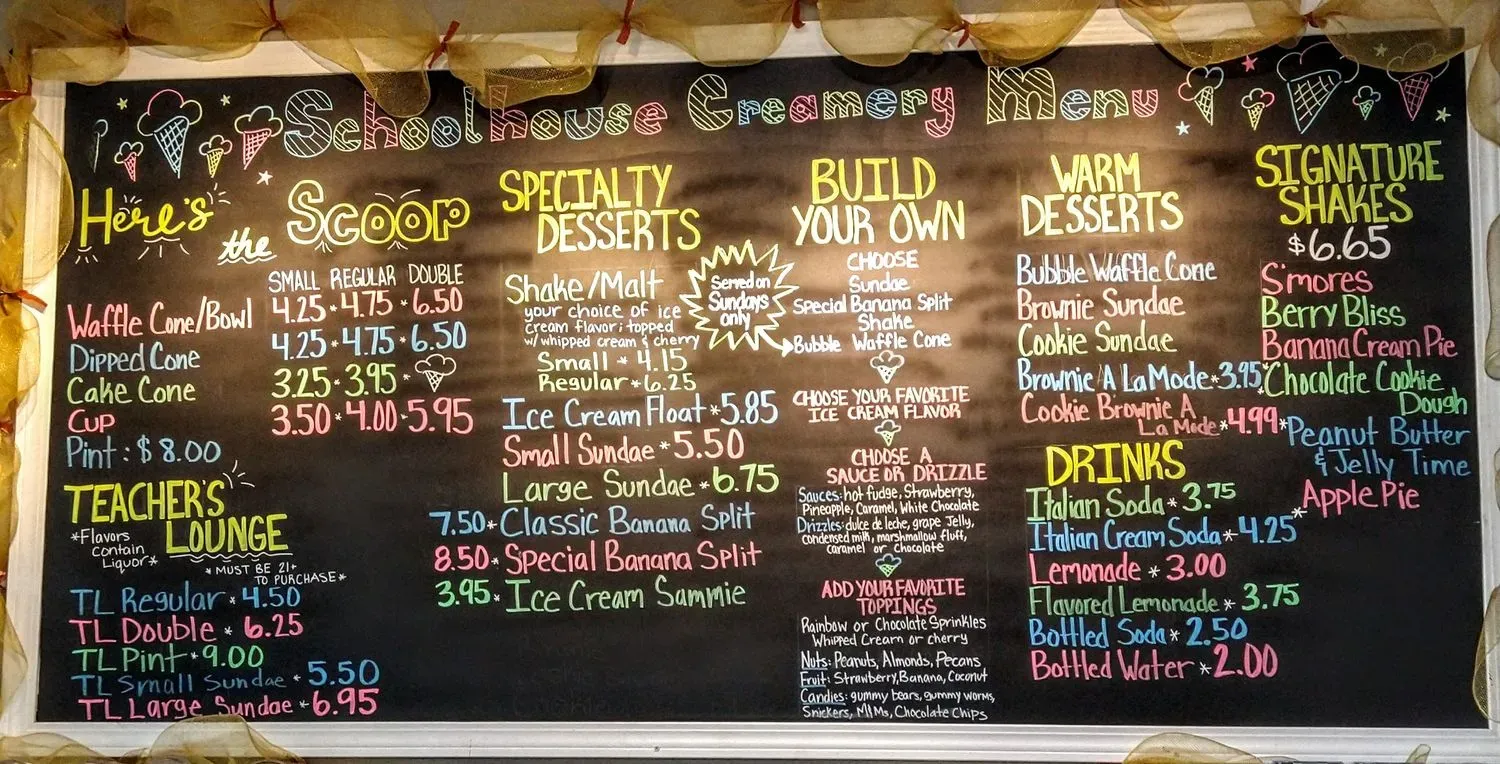 Schoolhouse Creamery Menu
Here's
the
Scoop
SMALL REGULAR DOUBLE
Waffle Cone/Bowl 4.25 * 4.75 * 6.50
Dipped Cone 4.25 * 4.75 * 6.50
Cake Cone 3.25 * 3.95 *
Cup 3.50 * 4.00 * 5.95
Pint: $8.00
TEACHER'S
LOUNGE
*Flavors
Contain
Liquor*
*MUST BE 21+
TO PURCHASE*
TL Regular * 4.50
TL Double * 6.25
TL Pint * 9.00
TL Small Sundae * 5.50
TL Large Sundae * 6.95
SPECIALTY
DESSERTS
Shake/Malt
your choice of ice
cream flavor; topped
w/ whipped cream & cherry
Small * 4.15
Regular * 6.25
Ice Cream Float * 5.85
Small Sundae * 5.50
Large Sundae * 6.75
7.50 * Classic Banana Split
8.50 * Special Banana Split
3.95 * Ice Cream Sammie
Served on
Sundays
only
BUILD
YOUR OWN
CHOOSE
Sundae
Special Banana Split
Shake
Bubble Waffle Cone
CHOOSE YOUR FAVORITE
ICE CREAM FLAVOR
CHOOSE A
SAUCE OR DRIZZLE
Sauces: hot fudge, Strawberry,
Pineapple, Caramel, White Chocolate
Drizzles: dulce de leche, grape Jelly,
condensed milk, marshmallow fluff,
caramel or Chocolate
ADD YOUR FAVORITE
TOPPINGS
Rainbow or Chocolate Sprinkles
Whipped Cream or cherry
Nuts: Peanuts, Almonds, Pecans
Fruit: Strawberry, Banana, Coconut
Candies: gummy bears, gummy worms,
Snickers, M&Ms, Chocolate Chips
WARM
DESSERTS
Bubble Waffle Cone
Brownie Sundae
Cookie Sundae
Brownie A La Mode * 3.95
Cookie Brownie A
La Mode * 4.99
DRINKS
Italian Soda * 3.75
Italian Cream Soda * 4.25
Lemonade * 3.00
Flavored Lemonade * 3.75
Bottled Soda * 2.50
Bottled Water * 2.00
SIGNATURE
SHAKES
$6.65
S'mores
Berry Bliss
Banana Cream Pie
*Chocolate Cookie
Dough
*Peanut Butter
& Jelly Time
*Apple Pie